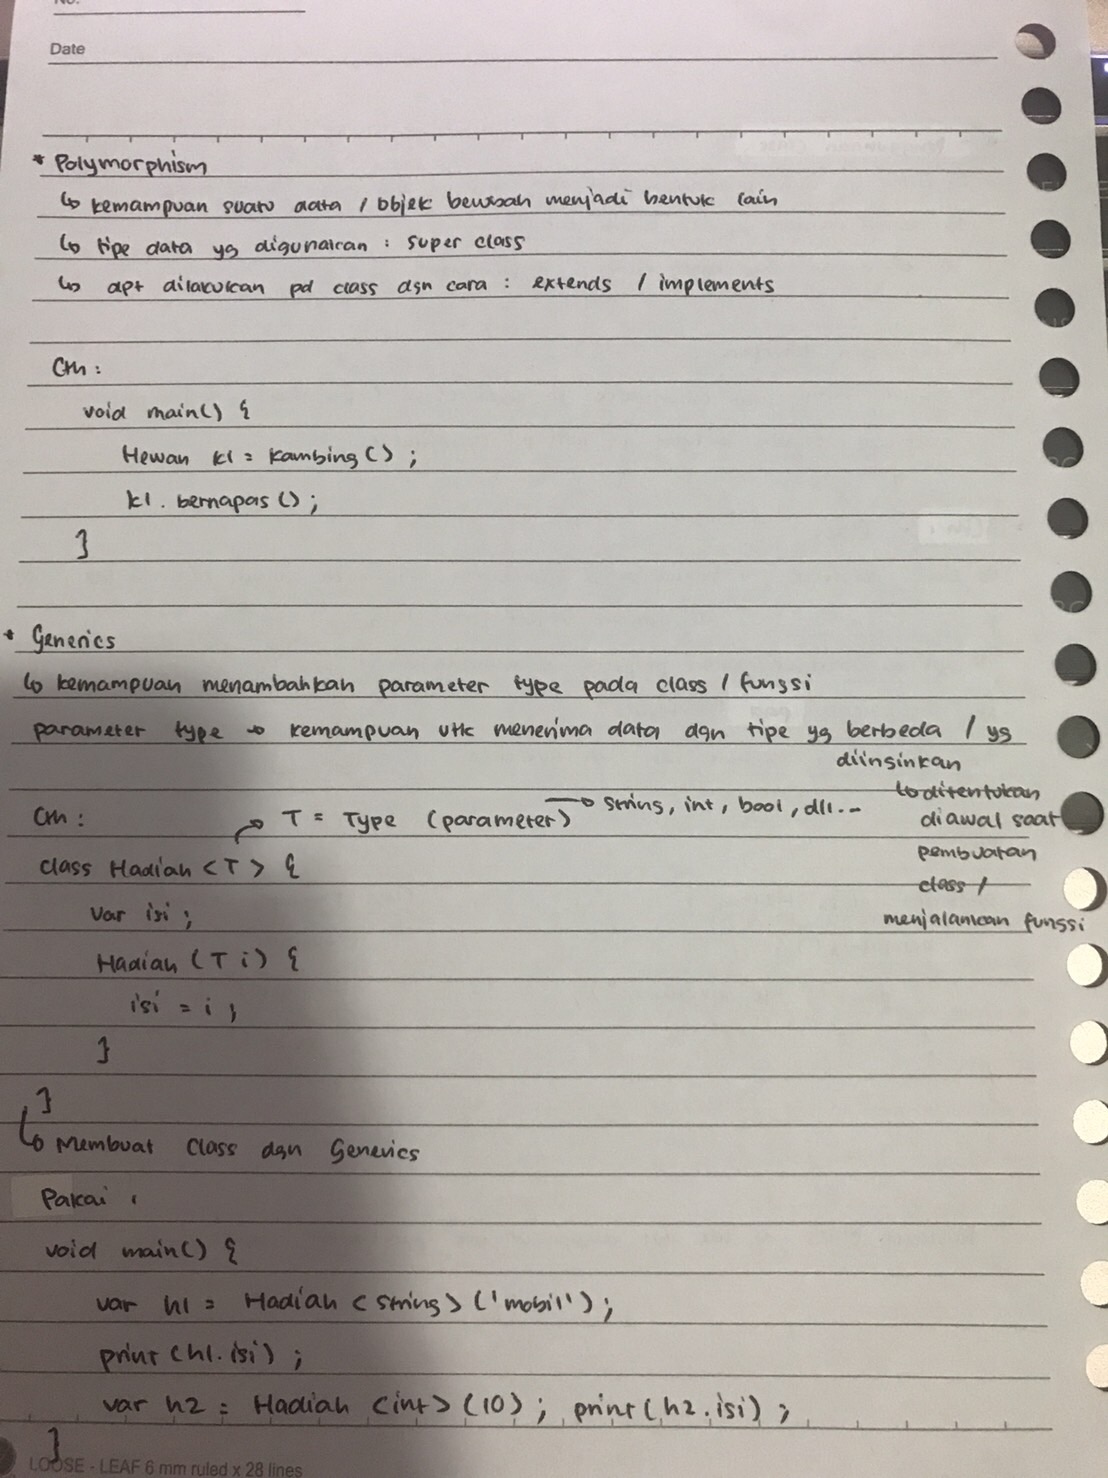 No.
Date
* Polymorphism
↳ kemampuan suatu data / objek berubah menjadi bentuk lain
↳ tipe data yg digunakan : super class
↳ dpt dilakukan pd class dgn cara : extends / implements
Cth :
void main() {
Hewan k1 = kambing() ;
k1. bernapas() ;
}
* Generics
↳ kemampuan menambahkan parameter type pada class / fungsi
parameter type → kemampuan utk menerima data dgn tipe yg berbeda / yg
diinginkan
↳ ditentukan
diawal saat
pembuatan
class /
menjalankan fungsi
Cth :
→ T = Type (parameter) → string, int, bool, dll...
class Hadiah <T> {
var isi ;
Hadiah (T i) {
isi = i ;
}
}
↳ Membuat class dgn Generics
Pakai :
void main() {
var h1 = Hadiah <string> ('mobil') ;
print (h1.isi) ;
var h2 = Hadiah <int> (10) ; print (h2.isi) ;
}
LOOSE - LEAF 6 mm ruled x 28 lines